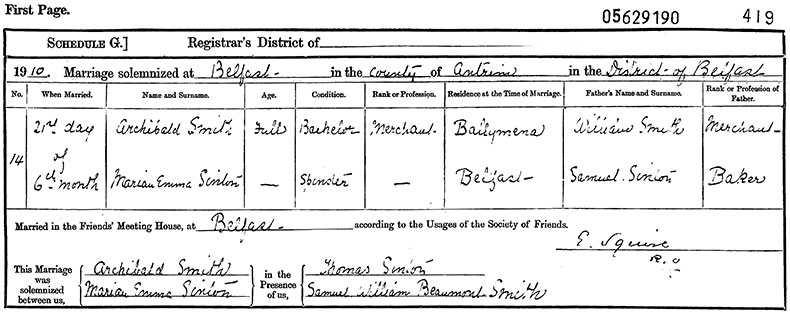 First Page. 05629190 419
SCHEDULE G.] Registrar's District of
1910. Marriage solemnized at Belfast in the County of Antrim in the District of Belfast
No. When Married. Name and Surname. Age. Condition. Rank or Profession. Residence at the Time of Marriage. Father's Name and Surname. Rank or Profession of Father.
14 21st day of 6th month Archibald Smith Full Bachelor Merchant Ballymena William Smith Merchant
Marian Emma Sinton — Spinster — Belfast Samuel Sinton Baker
Married in the Friends' Meeting House, at Belfast according to the Usages of the Society of Friends.
E. Squire
R.O
This Marriage was solemnized between us, Archibald Smith in the Presence of us, Thomas Sinton
Marian Emma Sinton Samuel William Beaumont Smith